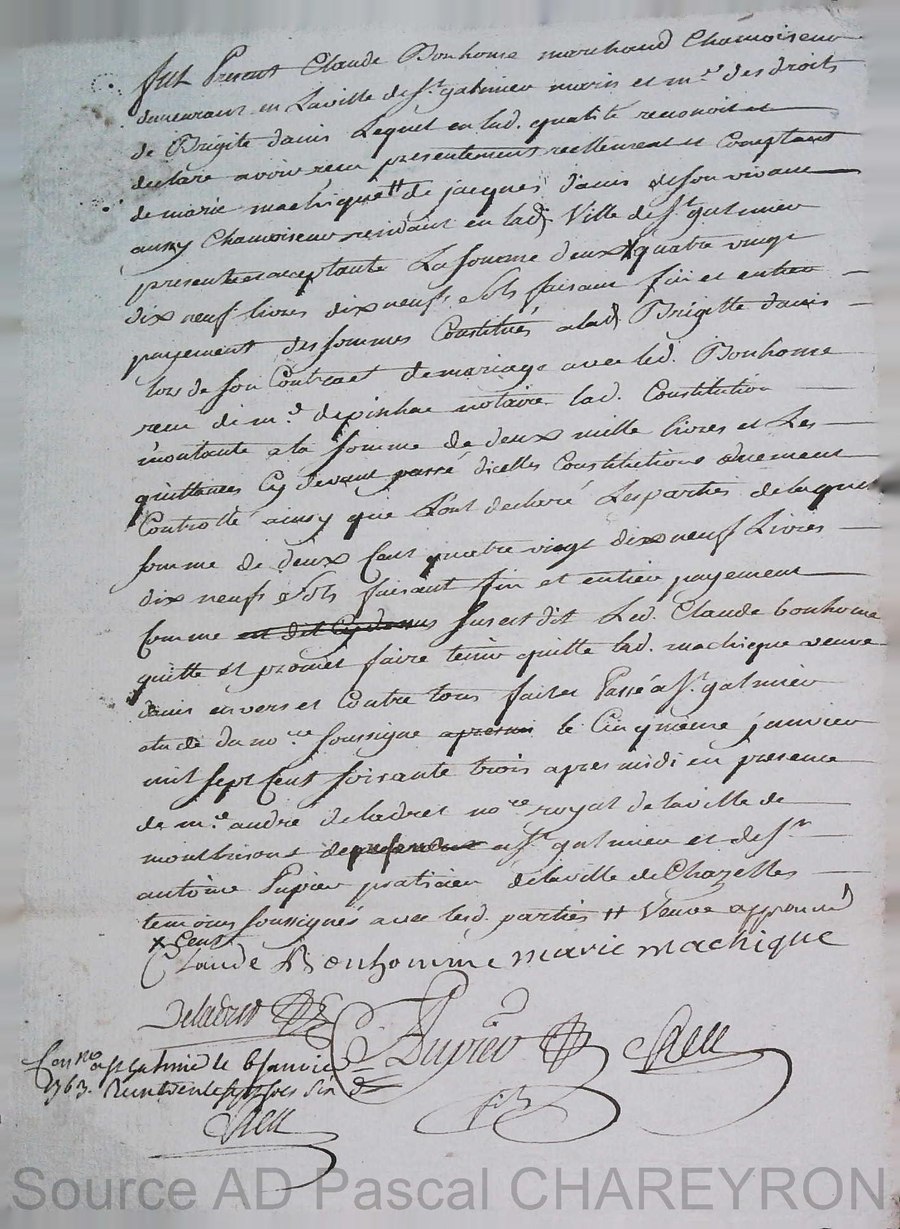 fut Present Claude Bonhome marchand Chamoiseur
demeurant en Laville de St. galmier maris et me. des droits
de Brigite danis Lequel en lad. qualité reconoit et
declare avoir recu presentement reellement et Comptant
de marie machique tt de jacques danis de son vivant
aussy Chamoiseur residant en lad. Ville de St. galmier
presente et acceptante La somme deux x quatre vingt
dix neuf livres dix neufs sols faisant fin et entier
payement des sommes Constitués a lad. Brigitte danis
lors de son Contract de mariage avec led. Bonhome
recu de me. depinhac notaire lad. Constitution
montante a la somme de deux mille livres et Les
quittances Cy devant passé dicelles Constitutions duement
Controllé ainsy que L'ont declaré Les parties de laquelle
somme de deux Cent quatre vingt dix neuf Livres
dix neufs sols faisant fin et entier payement
Comme est dit Cy dessus sus est dit Led. Claude bonhome
quitte et promet faire tenir quitte lad. machique veuve
danis envers et Contre tous fait et Passé a St. galmier
etude du nore. soussigne apresmi le Cinqmeme janvier
mil sept Cent soisante trois apres midi en presence
de me. andre deladret nore. royal de la ville de
montbrison a St. galmier et de Sr.
antoine Pupier praticien de la ville de Chazelles
temoins soussignés avec lesd. parties tt Veuve approuvé
x Cent
Claude Bonhomme marie machique
Deladret Pupier
Conno. a St Galmier le 6 Janvier
1763. Recu trente sept sols six d